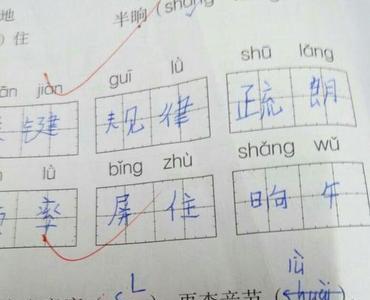 地 半晌（shǎng
）住
jiàn guī lǜ shū lǎng
键 规律 疏朗
lǜ bǐng zhù shǎng wǔ
率 屏住 晌午
lǜ
音节（